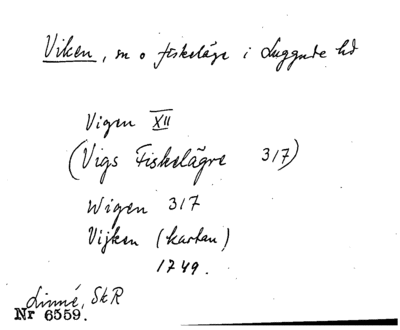 Viken, sn o fiskeläge i Luggude hd
Vigen XII
(Vigs Fiskelägre 317)
Wigen 317
Vijken (kartan)
1749.
Linné, SkR
Nr 6559.